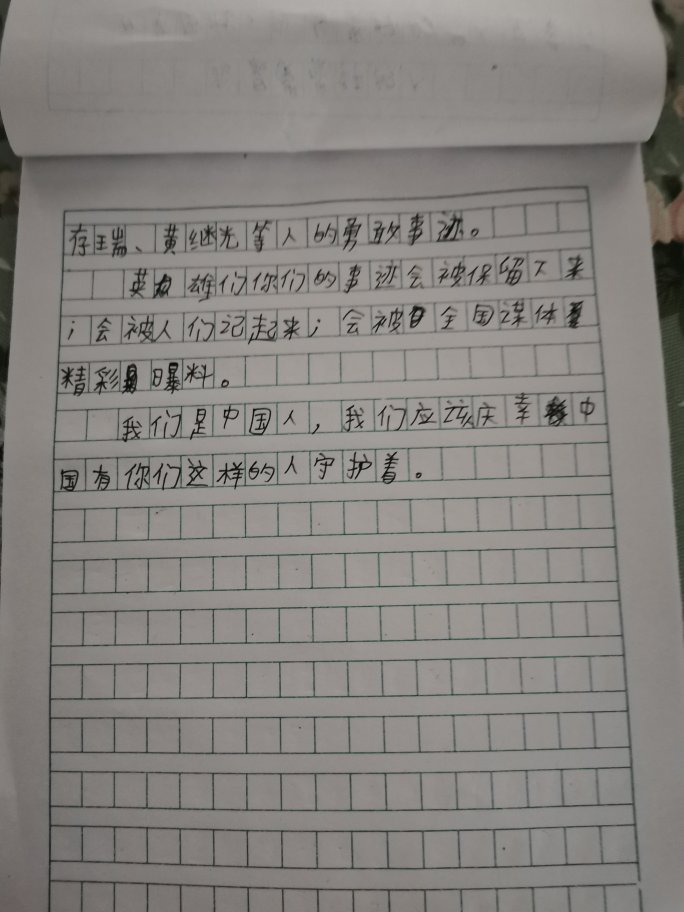 存瑞、黄继光等人的勇敢事迹。
英雄们你们的事迹会被保留下来
；会被人们记起来；会被全国谋体
精彩曝料。
我们是中国人，我们应该庆幸中
国有你们这样的人守护着。